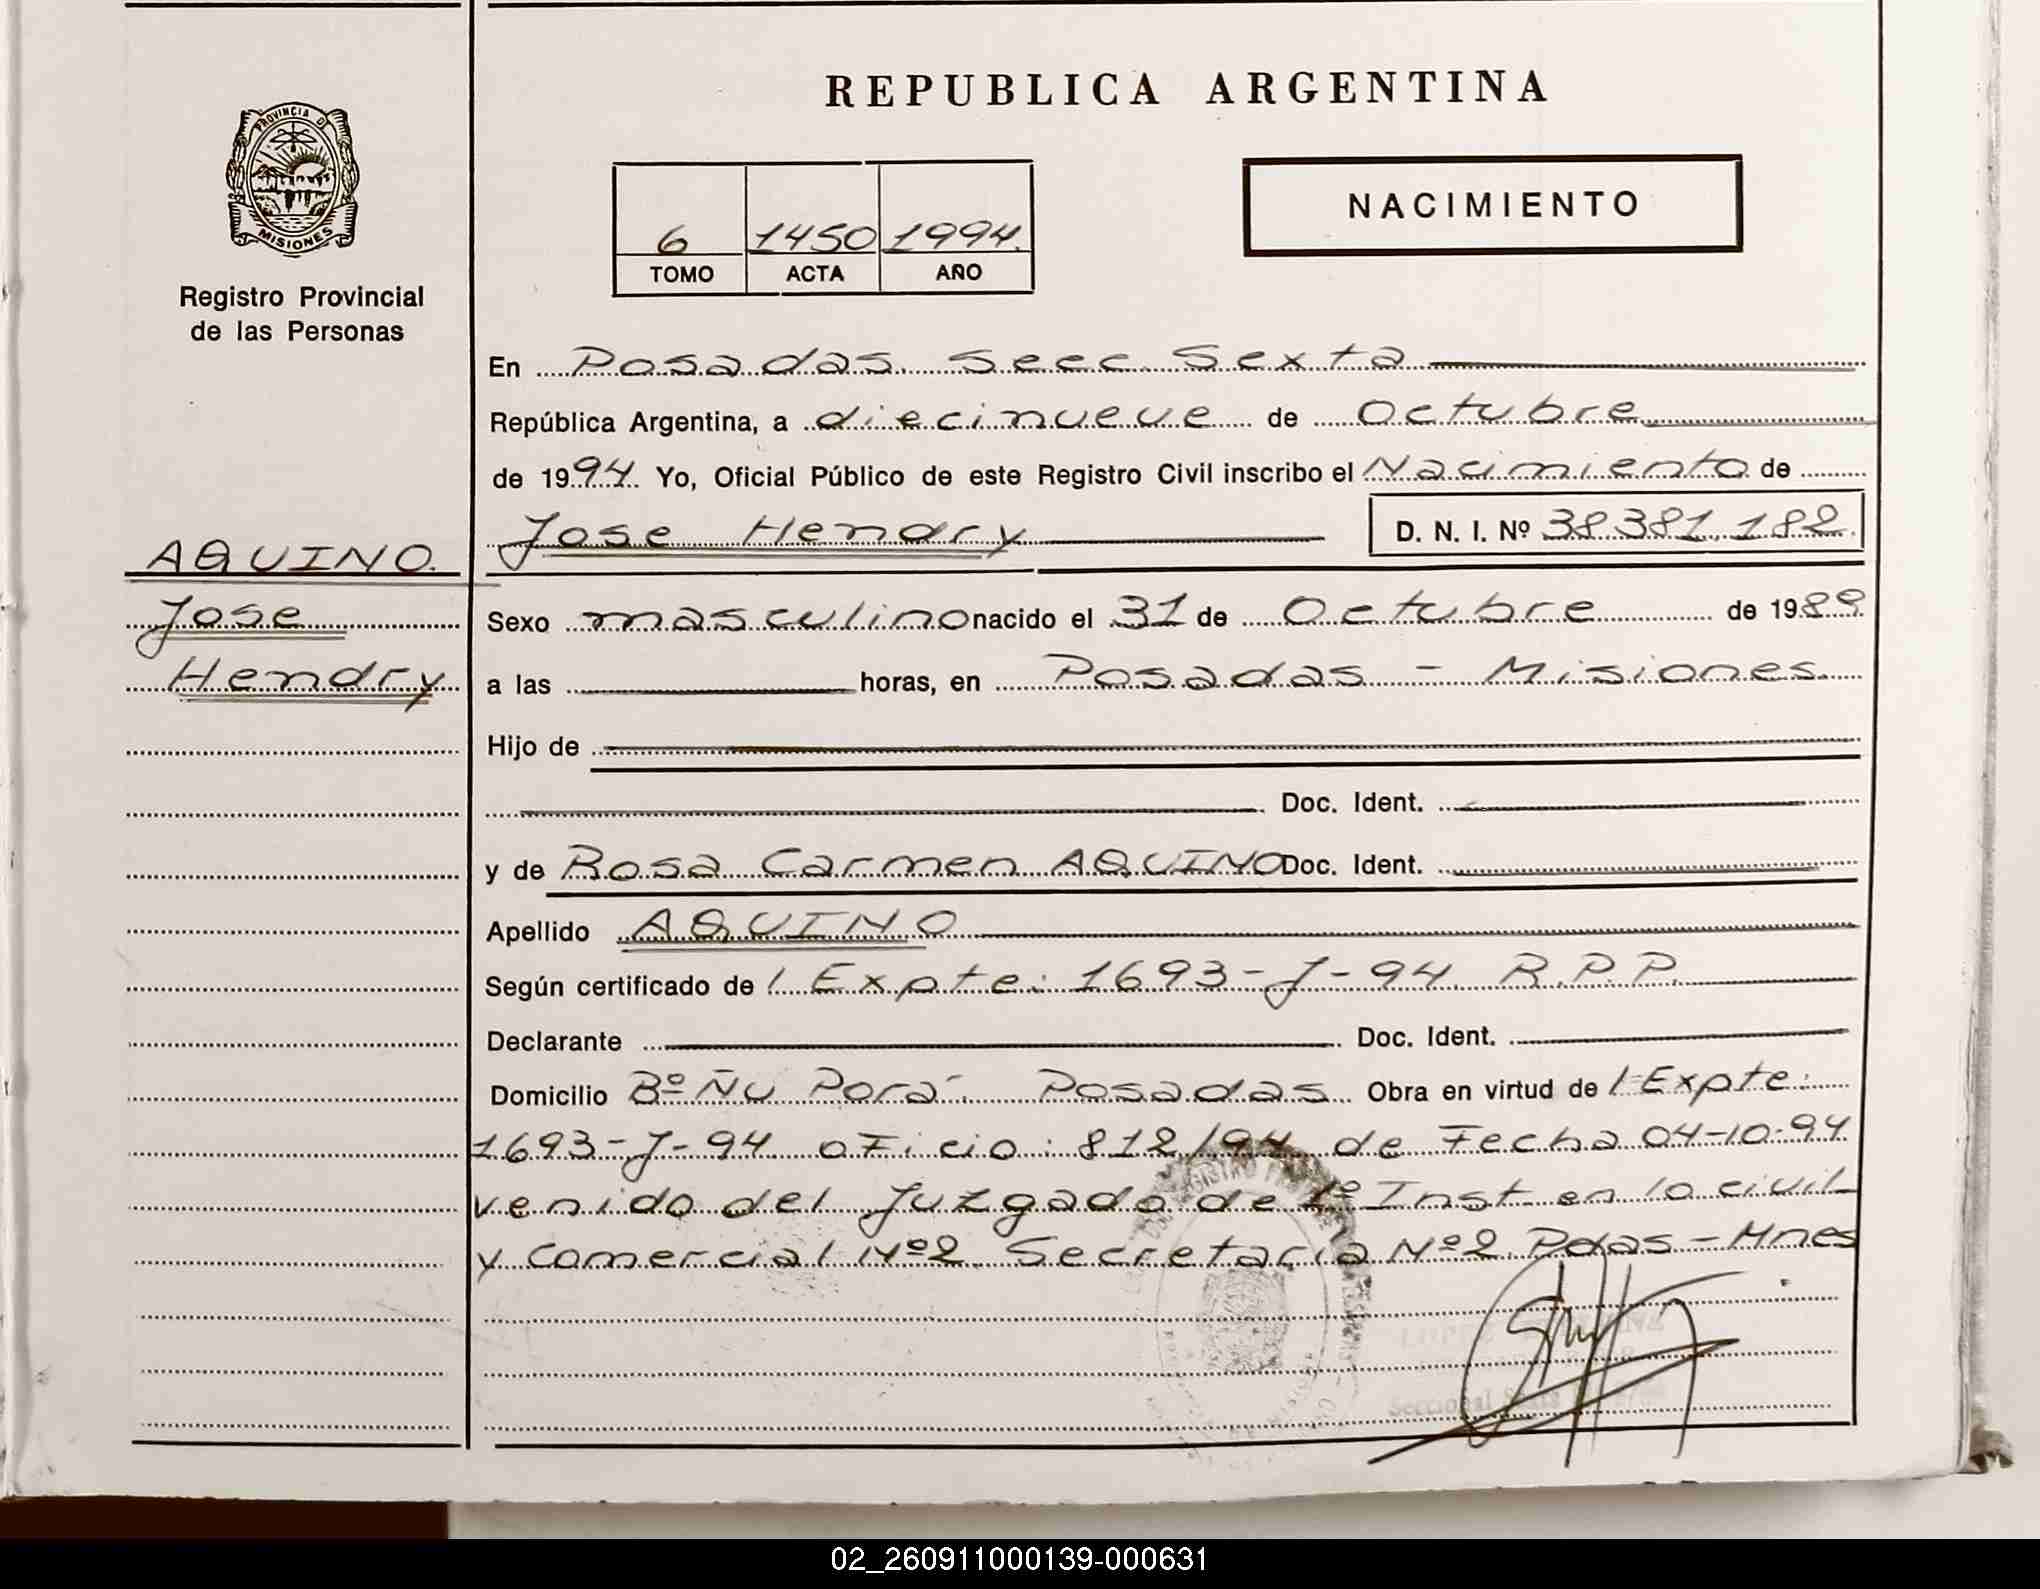 REPUBLICA ARGENTINA
PROVINCIA DE
MISIONES
Registro Provincial
de las Personas
6 1450 1994.
TOMO ACTA AÑO
NACIMIENTO
AQUINO.
Jose
Hendry
En Posadas. Secc. Sexta
República Argentina, a diecinueve de Octubre
de 1994. Yo, Oficial Público de este Registro Civil inscribo el Nacimiento de
Jose Hendry D. N. I. Nº 38.381.182.
Sexo masculino nacido el 31 de Octubre de 1989.
a las horas, en Posadas - Misiones.
Hijo de
Doc. Ident.
y de Rosa Carmen AQUINO Doc. Ident.
Apellido AQUINO
Según certificado de / Expte: 1693-J-94. R.P.P.
Declarante Doc. Ident.
Domicilio Bº Ñu Porá. Posadas Obra en virtud de / Expte:
1693-J-94 oficio: 812/94 de Fecha 04-10-94
venido del Juzgado de 1º Inst en lo civil
y comercial Nº2. Secretaria Nº2. Pdas - Mnes
Seccional Sexta
02_260911000139-000631